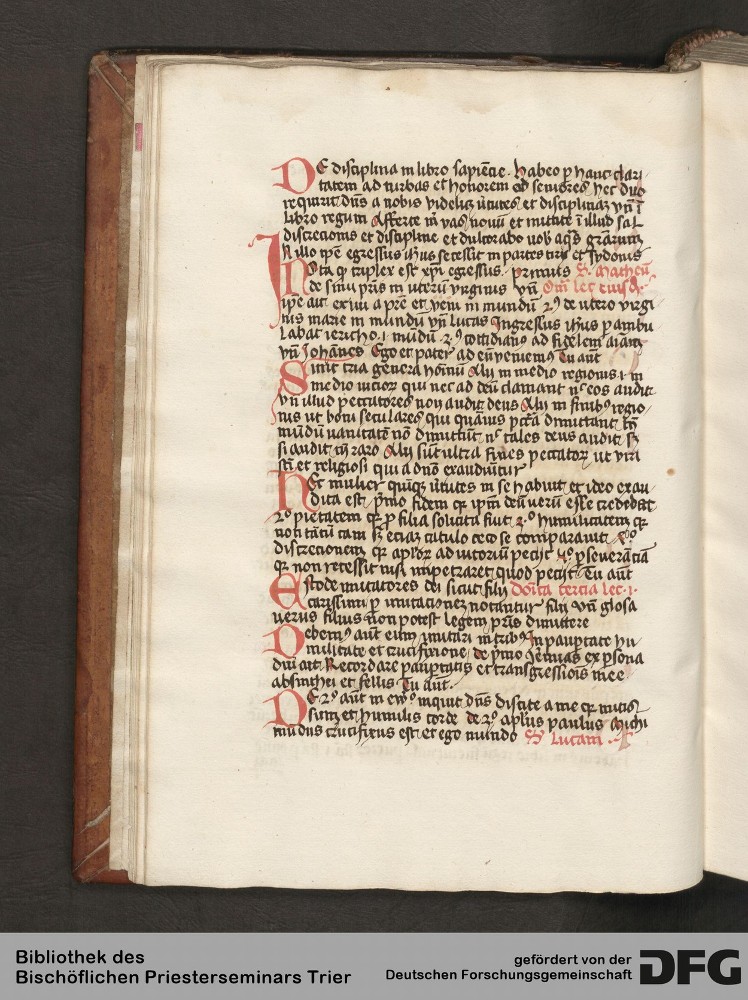 De disciplina in libro sapiẽtie · habeo ꝑ hanc clari
tatem ad turbas et honorem ad seniores hec duo
requirit dñs a nobis videlicꝫ ṽtutes et disciplinaꝫ vñ ĩ
libro regum Afferte m̃ vas nouũ et mittite ĩ illud sal
discrecionis et discipline et dulcorabo vob aq̃s
In illo tp̃e egressus ih̃us secessit in partes tiri et sydonis
Nota ꝙ triplex est xp̃i egressus · primus S. Matheũ
de sinu pr̃is in uterũ virginis vñ Om̃ lec eiusdẽ
ip̃e ait exiui a pr̃e et veni in mundũ 2º de utero virgi
nis marie in mundũ vñ lucas Ingressus ih̃us ꝑambu
labat iericho · i · mũdũ 3º cottidianꝰ ad fidelem aĩam
vñ Johãnes Ego et pater ad eũ veniemꝰ Tu aut̃
Sunt tria genera hoĩnũ Alij in medio regionis · i · in
medio vicioꝝ qui nec ad deũ clamant nᶜ eos audit
vñ illud peccatores non audit deus Alij in finibꝰ regio
nis ut boni seculares qui quãuis pctã dimittant tñ
mũdũ uanitatẽ nõ dimittũt nᶜ tales deus audit sꝫ
si audit tñ raro Alij sũt ultra fines peccatoꝝ ut viri
scĩ et religiosi qui a dño exaudiũtur
Hec mulier quinqꝫ ṽtutes in se habuit et ideo exau
dita est p̃mo fidem qꝛ ip̃m deũ verũ esse credebat
2º pietatem qꝛ ꝓ filia solicita fuit 3º humilitatem qꝛ
non tãtũ cani sꝫ eciaꝫ catulo ceco se comparauit
discrecionem qꝛ aploꝝ adiutoriũ peciit 5º ꝑseuerãciã
qꝛ non recessit nisi impetraret quod peciit Tu aut̃
Estote imitatores dei sicut filij Dom̃ca tercia lec · i ·
carissimi ꝑ imitacionem notantur filij vñ glosa
uerus filius non potest legem pr̃is dimittere
Debemꝰ aũt eum imitari in tribꝰ In paupertate hu
militate et crucifixione de p̃mo Jeremias ex ꝑsona
dñi ait Recordare paupertatis et transgressiois mee
absinthii et fellis Tu aut̃ ·
De 2º aũt in ewᵒ inquit dñs discite a me qꝛ mitis
sum et humilis corde de 3º aplus paulus Michi
mũdus crucifixus est et ego mundo S. Lucam
Bibliothek des
Bischöflichen Priesterseminars Trier
gefördert von der
Deutschen Forschungsgemeinschaft
DFG